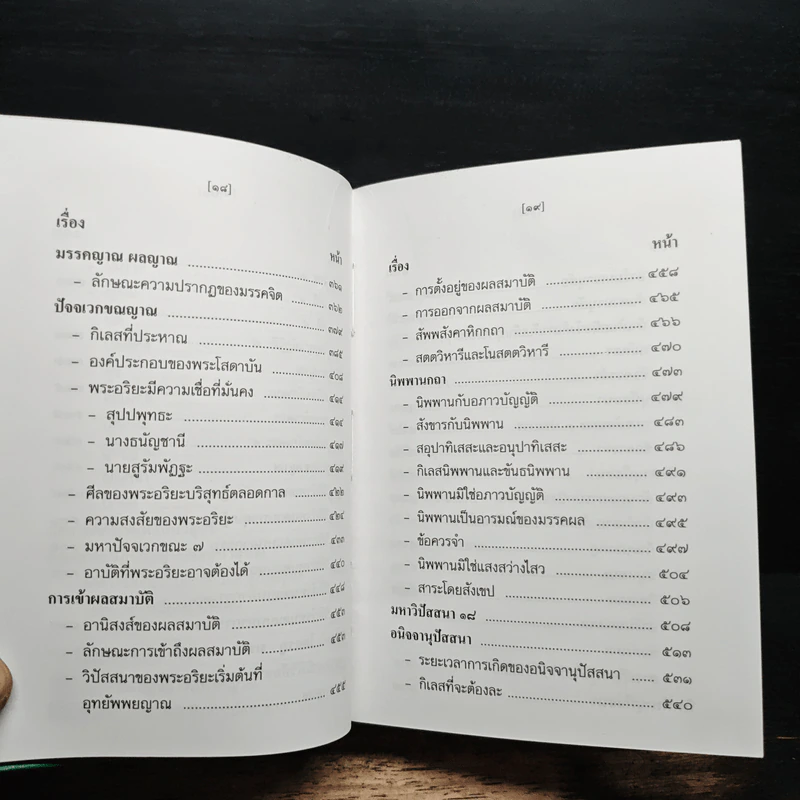 [๑๘]
เรื่อง
หน้า
มรรคญาณ ผลญาณ ........ ๓๖๑
- ลักษณะความปรากฏของมรรคจิต ........ ๓๖๒
ปัจจเวกขณญาณ ........ ๓๗๙
- กิเลสที่ประหาณ ........ ๓๘๕
- องค์ประกอบของพระโสดาบัน ........ ๔๐๘
- พระอริยะมีความเชื่อที่มั่นคง ........ ๔๑๔
- สุปปพุทธะ ........ ๔๑๔
- นางธนัญชานี ........ ๔๑๗
- นายสูรัมพัฏฐะ ........ ๔๑๙
- ศีลของพระอริยะบริสุทธ์ตลอดกาล ........ ๔๒๒
- ความสงสัยของพระอริยะ ........ ๔๒๔
- มหาปัจจเวกขณะ ๗ ........ ๔๓๓
- อาบัติที่พระอริยะอาจต้องได้ ........ ๔๔๐
การเข้าผลสมาบัติ ........ ๔๔๘
- อานิสงส์ของผลสมาบัติ ........ ๔๕๓
- ลักษณะการเข้าถึงผลสมาบัติ ........ ๔๕๓
- วิปัสสนาของพระอริยะเริ่มต้นที่
อุทยัพพยญาณ ........ ๔๕๕
[๑๙]
เรื่อง
หน้า
- การตั้งอยู่ของผลสมาบัติ ........ ๔๕๘
- การออกจากผลสมาบัติ ........ ๔๖๕
- สัพพสังคาหิกกถา ........ ๔๖๖
- สตตวิหารีและโนสตตวิหารี ........ ๔๗๐
นิพพานกถา ........ ๔๗๓
- นิพพานกับอภาวบัญญัติ ........ ๔๗๙
- สังขารกับนิพพาน ........ ๔๘๓
- สอุปาทิเสสะและอนุปาทิเสสะ ........ ๔๘๖
- กิเลสนิพพานและขันธนิพพาน ........ ๔๙๑
- นิพพานมิใช่อภาวบัญญัติ ........ ๔๙๓
- นิพพานเป็นอารมณ์ของมรรคผล ........ ๔๙๕
- ข้อควรจำ ........ ๔๙๗
- นิพพานมิใช่แสงสว่างไสว ........ ๕๐๔
- สาระโดยสังเขป ........ ๕๐๖
มหาวิปัสสนา ๑๘ ........ ๕๐๘
อนิจจานุปัสสนา ........ ๕๑๓
- ระยะเวลาการเกิดของอนิจจานุปัสสนา ........ ๕๓๑
- กิเลสที่จะต้องละ ........ ๕๔๐